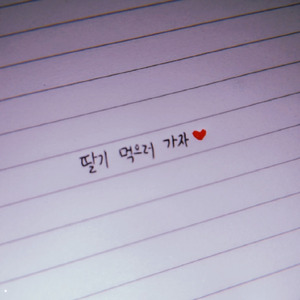 딸기 먹으러 가자♥